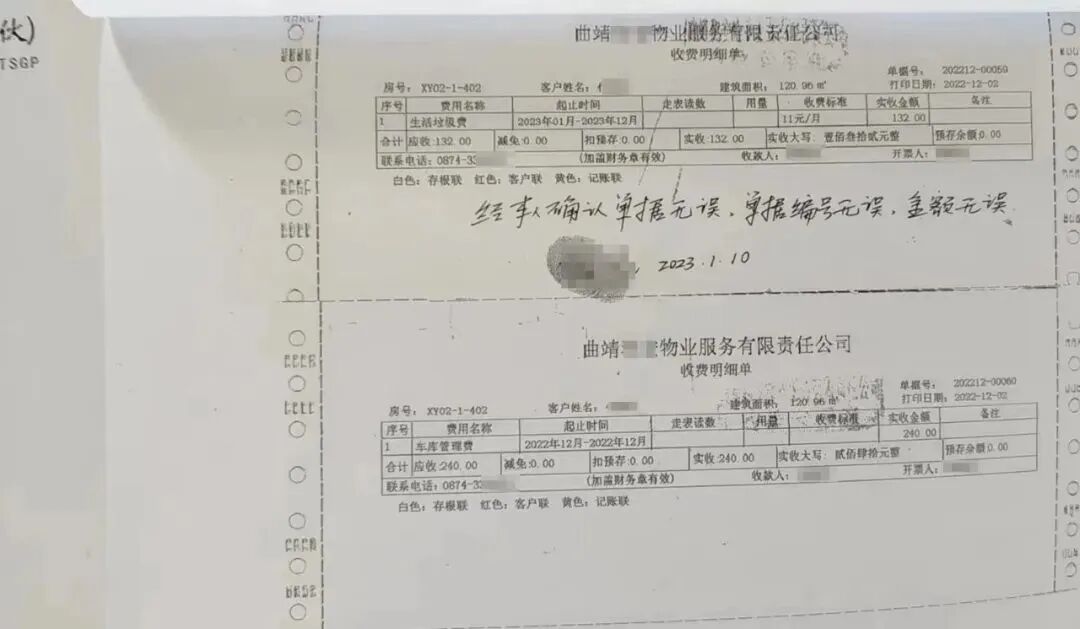 伙)
TSGP
曲靖 物业服务有限责任公司
收费明细单
单据号: 202212-00059
房号: XY02-1-402 客户姓名: 建筑面积: 120.96 ㎡ 打印日期: 2022-12-02
序号 费用名称 起止时间 走表读数 用量 收费标准 实收金额 备注
1 生活垃圾费 2023年01月-2023年12月 11元/月 132.00
合计 应收:132.00 减免:0.00 扣预存:0.00 实收:132.00 实收大写: 壹佰叁拾贰元整 预存余额:0.00
联系电话: 0874-33 (加盖财务章有效) 收款人: 开票人:
白色: 存根联 红色: 客户联 黄色: 记账联
经本人确认单据无误,单据编号无误,金额无误
2023.1.10
曲靖 物业服务有限责任公司
收费明细单
单据号: 202212-00060
房号: XY02-1-402 客户姓名: 建筑面积: 120.96 ㎡ 打印日期: 2022-12-02
序号 费用名称 起止时间 走表读数 用量 收费标准 实收金额 备注
1 车库管理费 2022年12月-2022年12月 240.00
合计 应收:240.00 减免:0.00 扣预存:0.00 实收:240.00 实收大写: 贰佰肆拾元整 预存余额:0.00
联系电话: 0874-3 (加盖财务章有效) 收款人: 开票人:
白色: 存根联 红色: 客户联 黄色: 记账联